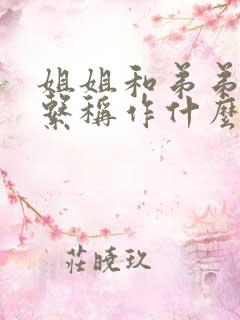 姐姐和弟弟
繫稱作什麼
莊曉玖